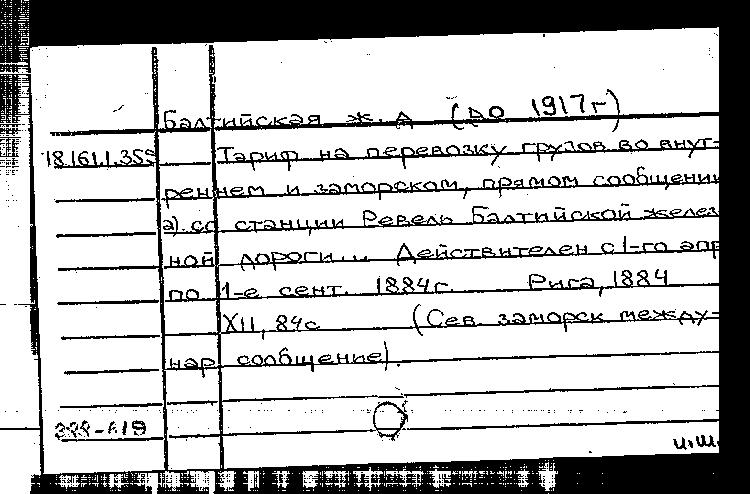 Балтийская ж. д (до 1917г)
18.161.1.355 Тариф на перевозку грузов во внут-
реннем и заморском, прямом сообщении
а). со станции Ревель Балтийской желез
ной дороги... Действителен с 1-го апр
по 1-е сент. 1884г. Рига, 1884
XII, 84с (Сев. заморск между-
нар сообщение).
и.ш.